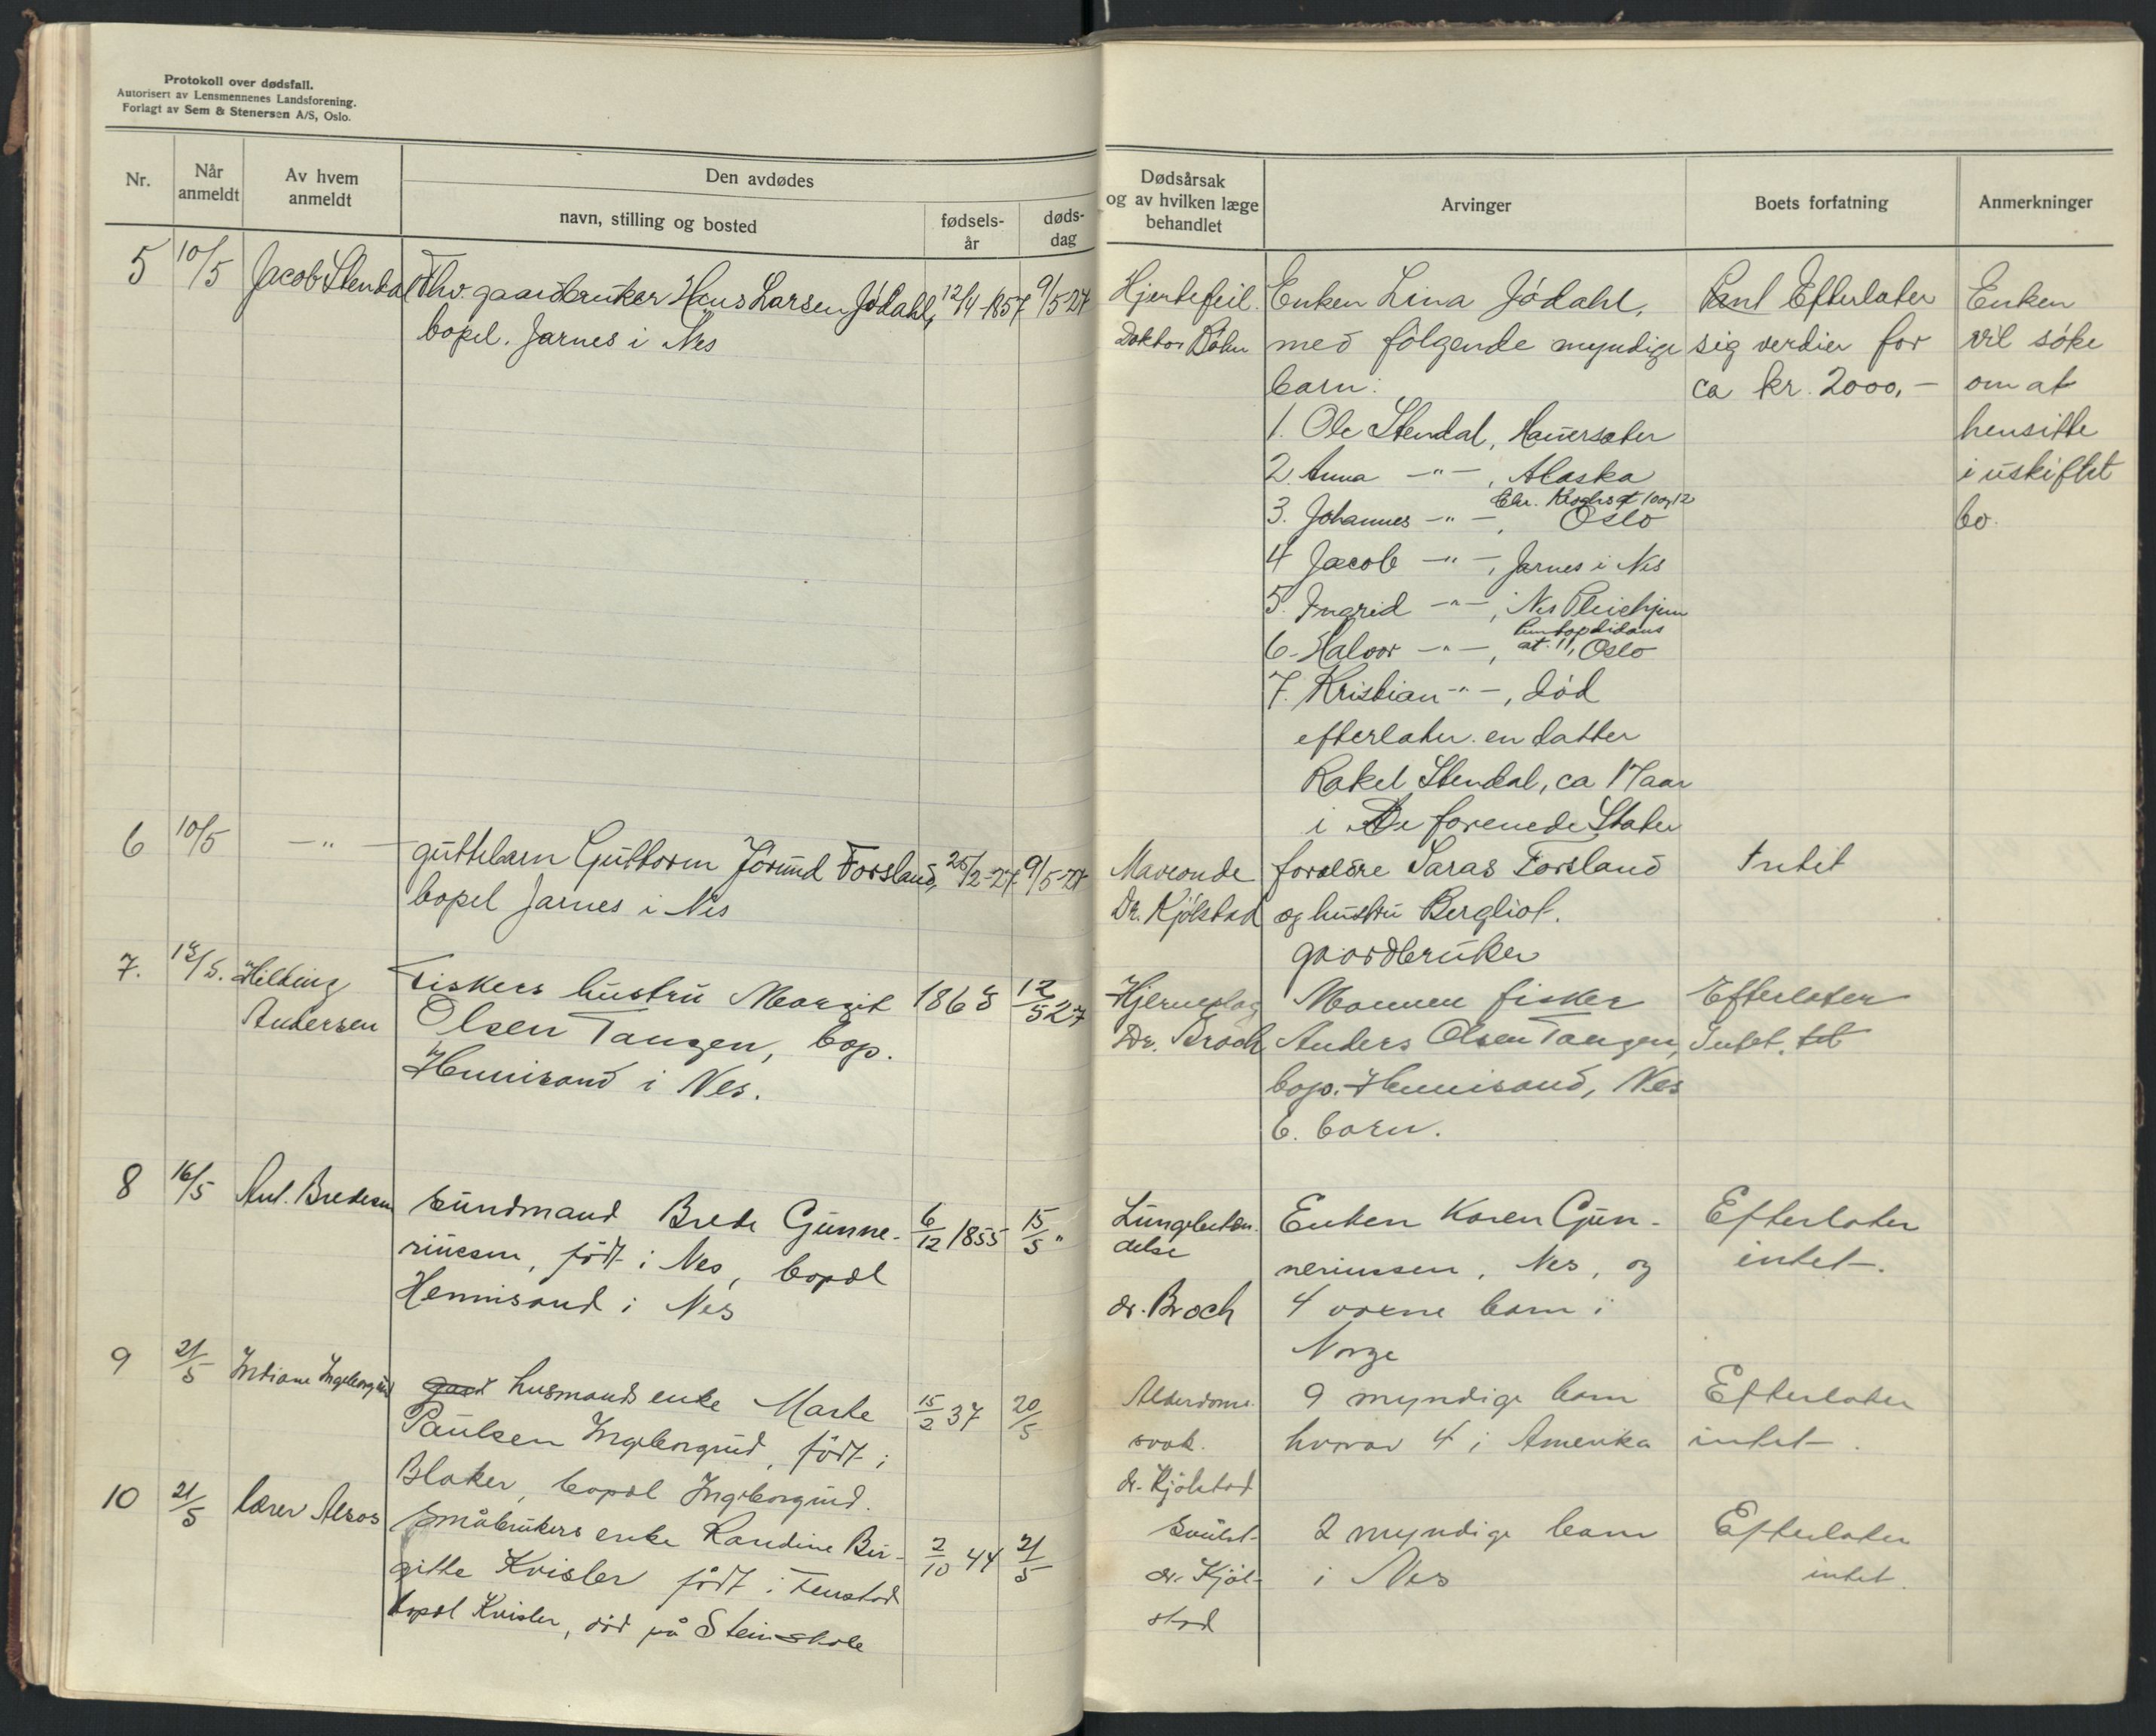 Protokoll over dødsfall.
Autorisert av Lensmennenes Landsforening.
Forlagt av Sem & Stenersen A/S, Oslo.
Nr.
Når anmeldt
Av hvem anmeldt
Den avdødes
navn, stilling og bosted
fødsels-år
døds-dag
Dødsårsak og av hvilken læge behandlet
Arvinger
Boets forfatning
Anmerkninger
5 10/5 Jacob Stendal Fhv. gaardbruker Hans Larsen Jødahl, 12/4-1857 9/5-27
bopel. Jarnes i Nes
Hjertefeil.
Doktor
Enken Lina Jødahl,
med følgende myndige
barn:
1. Ole Stendal, Hauersæter
2. Anna -"-, Alaska
Chr. Kroghsgt 10 og 12
3. Johannes -"-, Oslo
4 Jacob -"-, Jarnes i Nes
5. Ingrid -"-, Nes Pleiehjem
6. Halvor -"-, at. 11, Oslo
7. Kristian -"-, død
efterlater en datter
Rakel Stendal, ca 17 aar
i De forenede Stater
Efterlater
sig verdier for
ca kr. 2000,-
Enken
vil søke
om at
hensitte
i uskiftet
bo.
6 10/5 -"- guttebarn Guttorm Jørund Forsland, 25/2-27 9/5-27
bopel Jarnes i Nes
Maveonde
Dr. Kjølstad
foreldre Saras Forsland
og hustru Bergliot.
gaardbruker
Intet
7. 12/5. Hilding Andersen
Fiskers hustru Margit 1868 12/5 27
Olsen Tangen, bop.
Hennisand i Nes.
Hjerneslag
Dr. Broch
Mannen fisker
Anders Olsen Tangen,
bop. Hennisand, Nes
6. barn.
Efterlater
Intet.
8 16/5 Ant. Bredesen
sundmand Brede Gunne-
riussen, født i Nes, bopæl
Hennisand i Nes
6/12 1855 15/5 "
Lungebeten-
delse
dr. Broch
Enken Karen Gun-
neriussen, Nes, og
4 voksne barn i
Norge
Efterlater
intet.
9 21/5 Indiane Ingeborgrud
husmands enke Marte
Paulsen Ingeborgrud, født i
Blaker, bopæl Ingeborgrud.
15/2 37 20/5
Alderdoms-
svak.
dr. Kjølstad
9 myndige barn
hvorav 4 i Amerika
Efterlater
intet.
10 21/5 lærer Alsos
Småbrukers enke Randine Bir-
gitte Kvisler født i Fenstad
bopæl Kvisler, død på Stein skole
2/10 44 21/5
Svulst
dr. Kjøl-
stad
2 myndige barn
i Nes
Efterlater
intet.